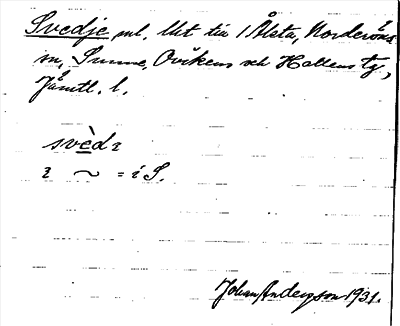 Svedje ml. Utt till 1 Ålsta, Norderöns
sn, Sunne, Ovikens och Hallens tg,
Jämtl. l.
svèdɩ
ɩ ~ = i S.
Johan Anderson 1931.